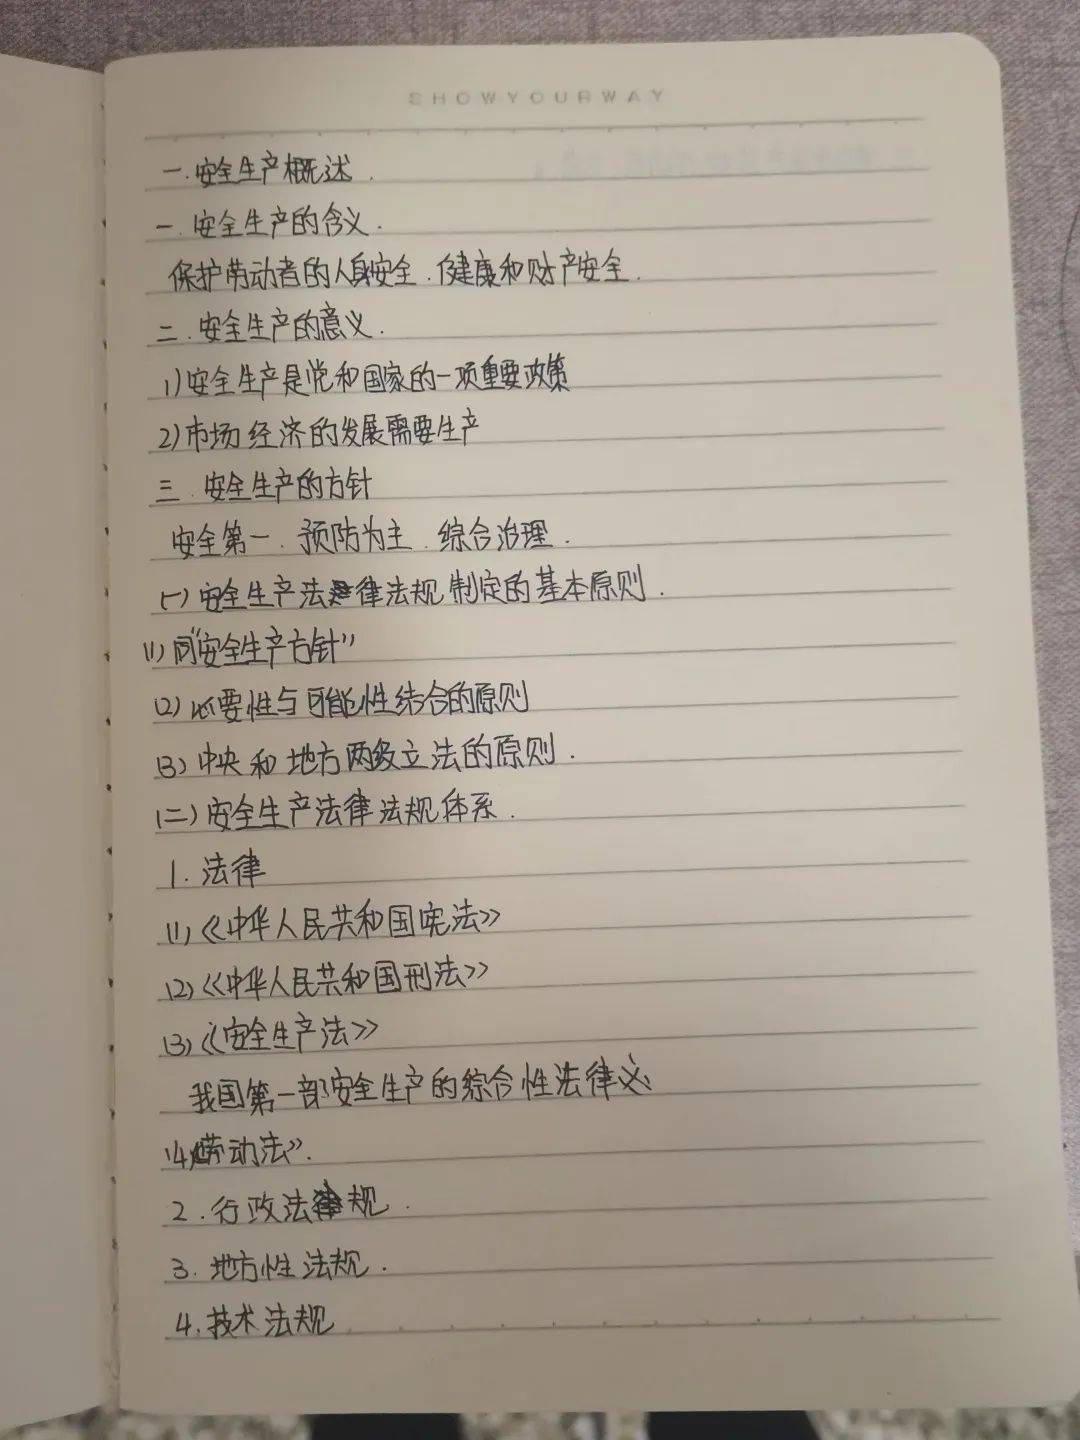 SHOWYOURWAY
一.安全生产概述.
一.安全生产的含义.
保护劳动者的人身安全.健康和财产安全.
二.安全生产的意义.
1)安全生产是党和国家的一项重要政策
2)市场经济的发展需要生产
三.安全生产的方针
安全第一.预防为主.综合治理.
(一)安全生产法律法规制定的基本原则.
(1)同"安全生产方针"
(2)必要性与可能性结合的原则
(3)中央和地方两级立法的原则.
(二)安全生产法律法规体系.
1.法律
(1)《中华人民共和国宪法》
(2)《中华人民共和国刑法》
(3)《安全生产法》
我国第一部安全生产的综合性法律
(4)《劳动法》.
2.行政法规.
3.地方性法规.
4.技术法规